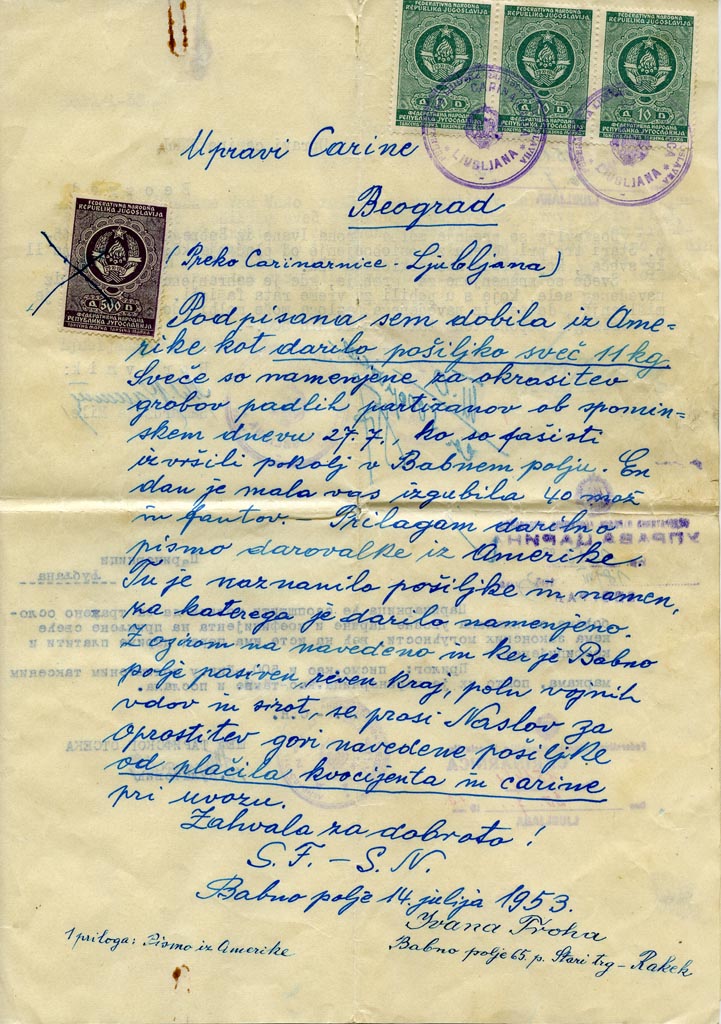 FEDERATIVNA NARODNA
REPUBLIKA JUGOSLAVIJA
10
D
LJUBLJANA
LJUBLJANA
Upravi Carine
Beograd
(Preko Carinarnice - Ljubljana)
FEDERATIVNA NARODNA
REPUBLIKA JUGOSLAVIJA
D 500 D
ФЕДЕРАТИВНА НАРОДНА
РЕПУБЛИКА ЈУГОСЛАВИЈА
Podpisana sem dobila iz Ame-
rike kot darilo pošiljko sveč 11 kg
Sveče so namenjene za okrasitev
grobov padlih partizanov ob spomin-
skem dnevu 27.7., ko so fašisti
izvršili pokolj v Babnem polju. En
dan je mala vas izgubila 40 mož
in fantov. - Prilagam darilno
pismo darovalke iz Amerike.
Tu je naznanilo pošiljke in namen,
za katerega je darilo namenjeno.
Z ozirom na navedeno in ker je Babno
polje pasiven, reven kraj, poln vojnih
vdov in sirot, se prosi Naslov za
oprostitev gori navedene pošiljke
od plačila kvocijenta in carine
pri uvozu.
Zahvala za dobroto!
S. F. - S. N.
Babno polje 14. julija 1953.
Ivana Troha
Babno polje 65. p. Stari trg - Rakek
1 priloga: Pismo iz Amerike